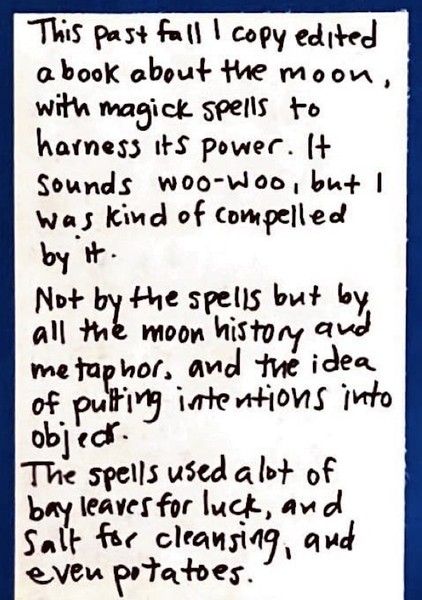 This past fall I copy edited
a book about the moon,
with magick spells to
harness its power. It
sounds woo-woo, but I
was kind of compelled
by it.
Not by the spells but by
all the moon history and
metaphor, and the idea
of putting intentions into
object.
The spells used a lot of
bay leaves for luck, and
salt for cleansing, and
even potatoes.